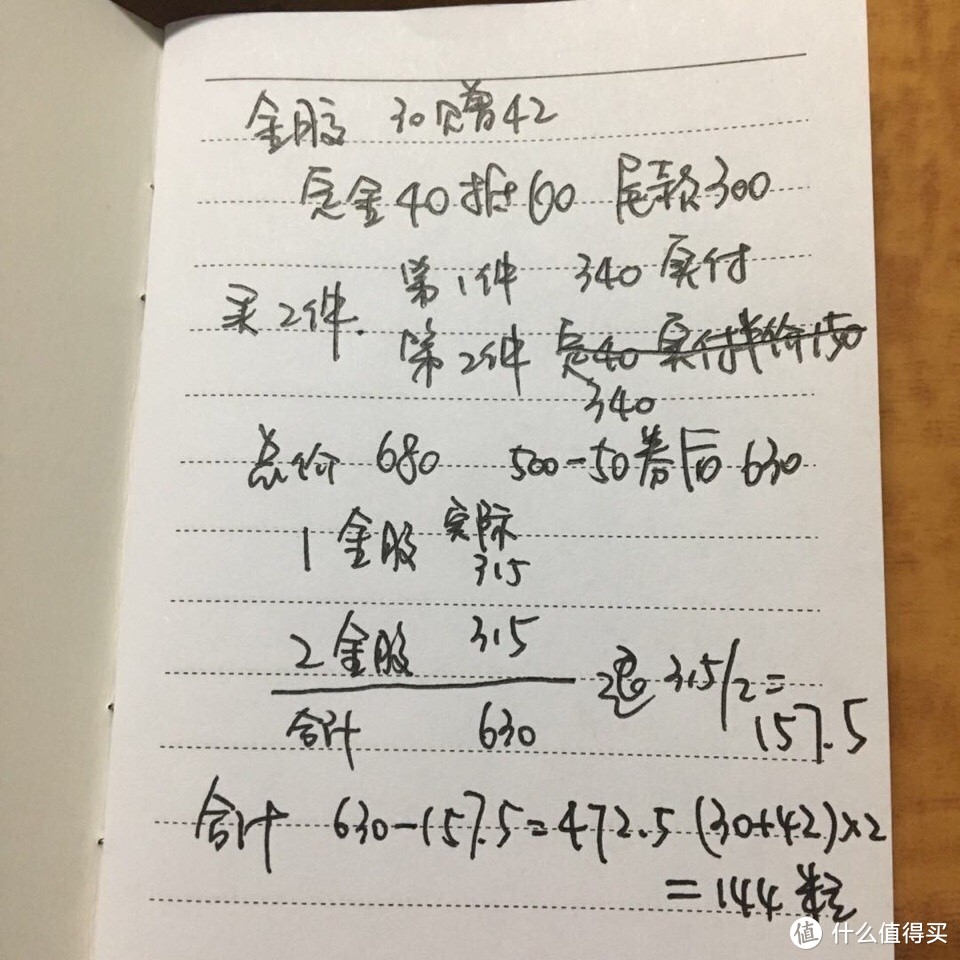 金胶 30赠42
定金40抵60 尾款300
买2件. 第1件 340 实付
第2件 定40 实付半价150
340
总价 680 500-50券后 630
1 金胶 实际
315
2 金胶 315
退 315/2=
157.5
合计 630
合计 630-157.5=472.5 (30+42)×2
=144粒
值 什么值得买